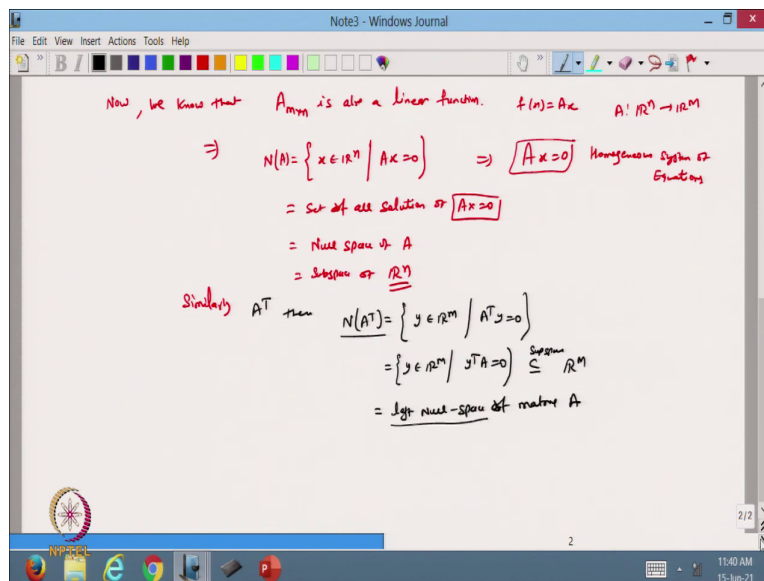 Note3 - Windows Journal
File Edit View Insert Actions Tools Help
Now, we know that A_{m×n} is also a linear function. f(x)=Ax A: ℝⁿ → ℝᵐ
⇒ N(A) = { x ∈ ℝⁿ | Ax=0 } ⇒ Ax=0 Homogeneous System of
Equations
= Set of all solution of Ax=0
= Null space of A
= Subspace of ℝⁿ
Similarly Aᵀ then N(Aᵀ) = { y ∈ ℝᵐ | Aᵀy=0 }
= { y ∈ ℝᵐ | yᵀA=0 } ⊆ ℝᵐ
= left Null-space of matrix A
2/2
2
NPTEL
11:40 AM
15-Jun-21